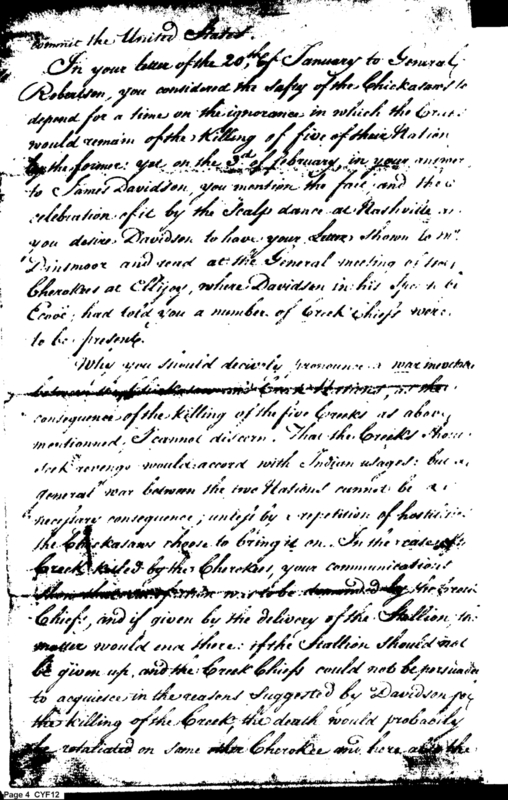 commit the United States.
In your letter of the 20th of January to General
Robertson, you considered the safty of the Chickasaws to
depend for a time on the ignorance in which the Creeks
would remain of the killing of five of their Nation
by the former: yet on the 3d of february, in your answer
to James Davidson, you mention the fact, and the
celebration of it by the Scalp dance at Nashville
you desire Davidson to have your Letter shown to Mr.
Dinsmoor and read at the General meeting of
Cherokees at Ellijoy, where Davidson in his
had told you a number of Creek Chiefs were
to be present.
Why you should decively pronounce a war inevitable
between the Chickasaw and Creek Nations, as the
consequence of the killing of the five Creeks as above
mentionned, I cannot discern. That the Creeks should
seek revenge would accord with Indian usages: but a
general war between the two Nations cannot be a
necessary consequence; unless by a repetition of hostilities
the Chickasaws choose to bring it on. In the case of
Creek killed by the Cherokees, your communications
was to be demanded by the Creek
Chiefs, and if given by the delivery of the Stallion, the
matter would end there: if the Stallion should not
be given up, and the Creek Chiefs could not be persuaded
to acquiesce in the reasons suggested by Davidson for
the killing of the Creek, the death would probably
be retaliated on some other Cherokee and here also the
Page 4 CYF12